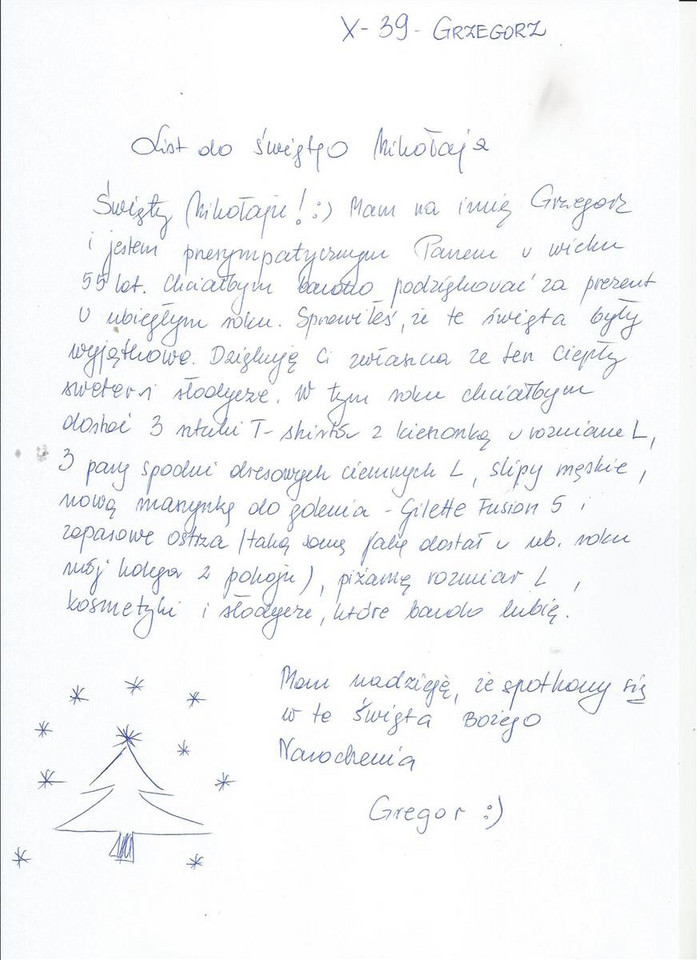 X-39- GRZEGORZ
List do Świętego Mikołaja
Święty Mikołaju! :) Mam na imię Grzegorz
i jestem przesympatycznym Panem w wieku
55 lat. Chciałbym bardzo podziękować za prezent
w ubiegłym roku. Sprawiłeś, że te święta były
wyjątkowe. Dziękuję Ci zwłaszcza ze ten ciepły
sweter i słodycze. W tym roku chciałbym
dostać 3 sztuki T-shirtów z kieszonką w rozmiarze L,
3 pary spodni dresowych ciemnych L, slipy męskie,
nową maszynkę do golenia - Gilette Fusion 5 i
zapasowe ostrza (taką samą jaką dostał w ub. roku
mój kolega z pokoju), piżamę rozmiar L,
kosmetyki i słodycze, które bardzo lubię.
Mam nadzieję, że spotkamy się
w te Święta Bożego
Narodzenia
Gregor :)